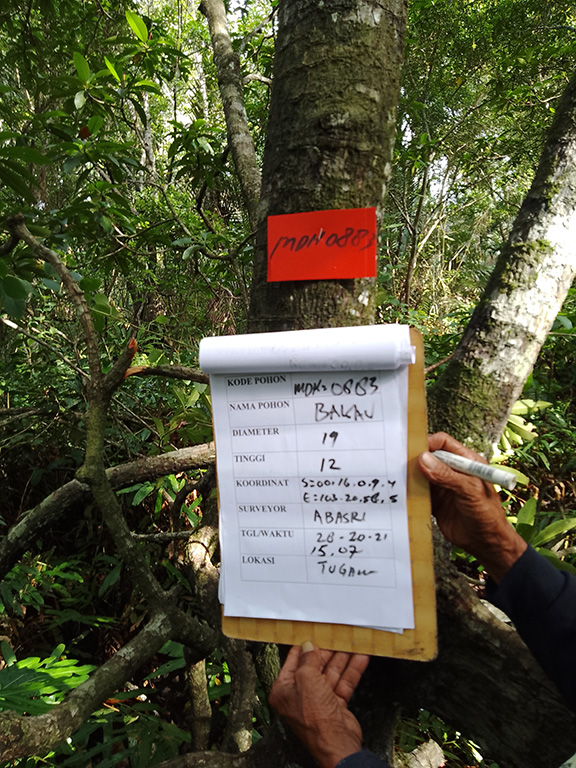 MDN0883
KODE POHON MDN=0883
NAMA POHON BAKAU
DIAMETER 19
TINGGI 12
KOORDINAT S=00.16.0.9.4
E=103.20,58,5
SURVEYOR ABASRI
TGL/WAKTU 28-20-21
15,07
LOKASI